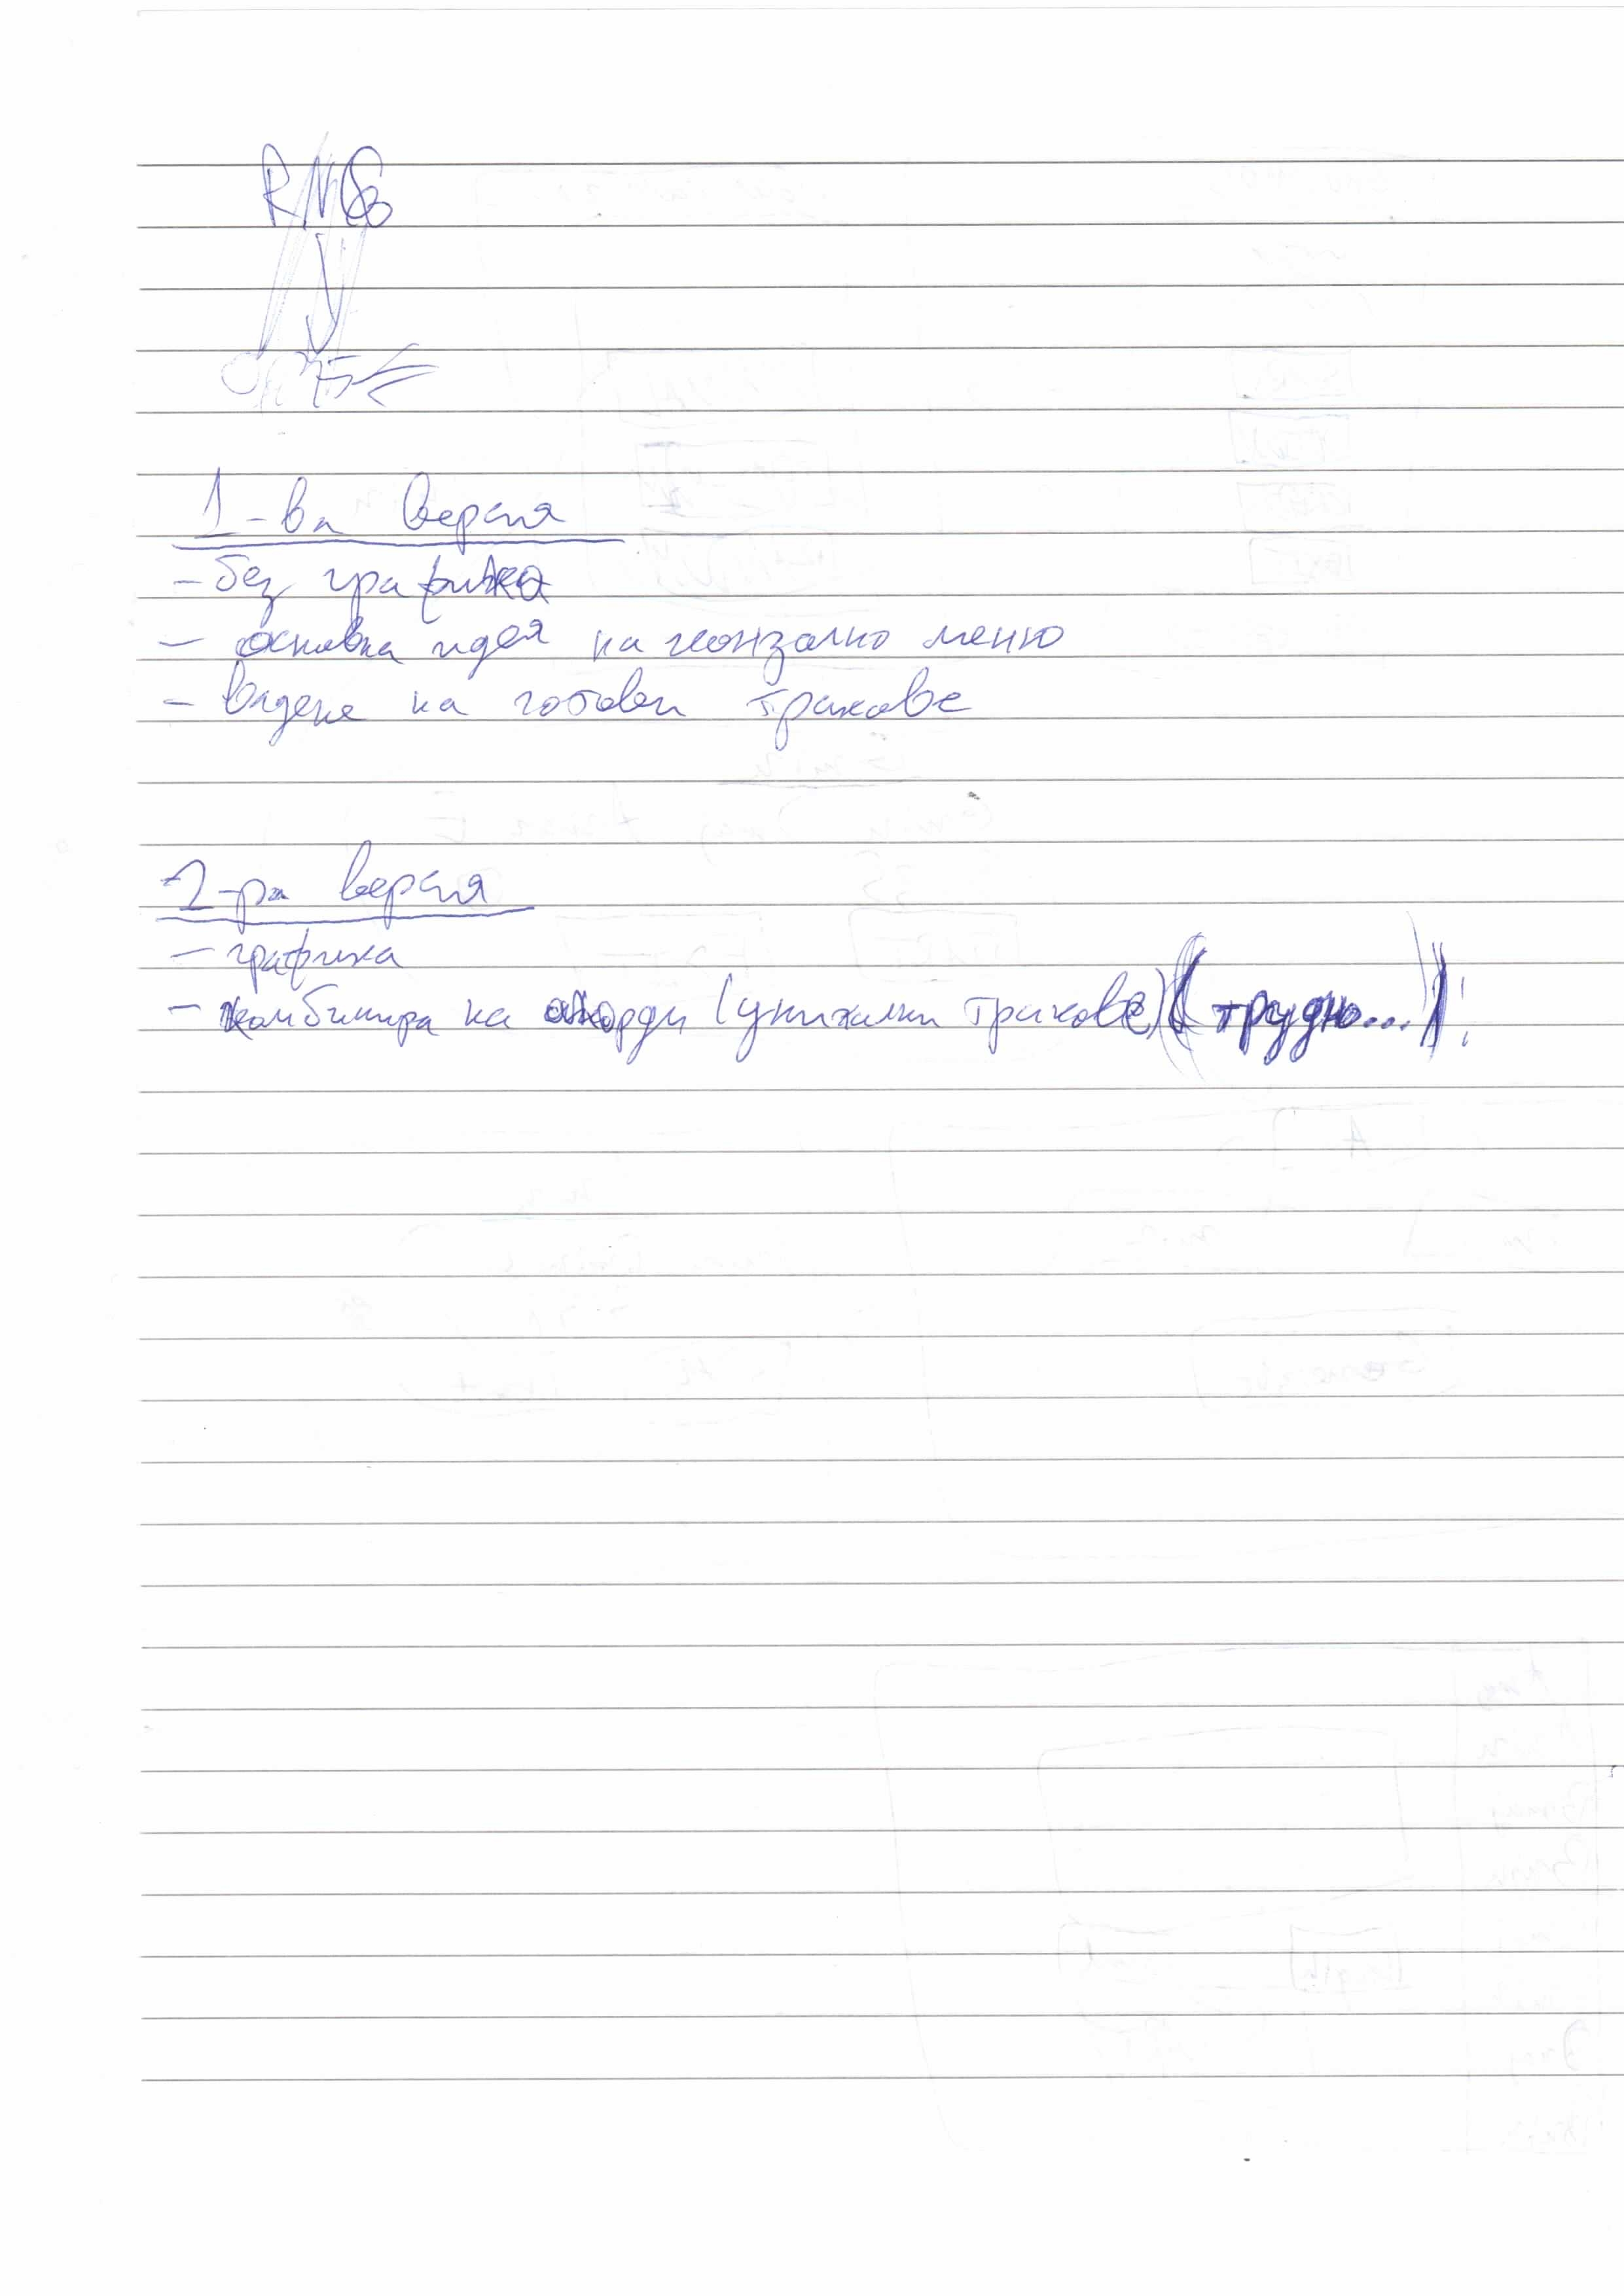 1-ва версия
- без графика
- основна идея на меню
- вадене на готови тракове
2-ра версия
- графика
- комбинира на акорди (уникални тракове) (трудно...)!